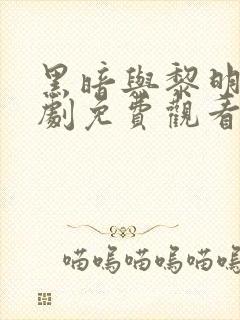 黑暗與黎明
劇免費觀看
喵嗚喵嗚喵嗚